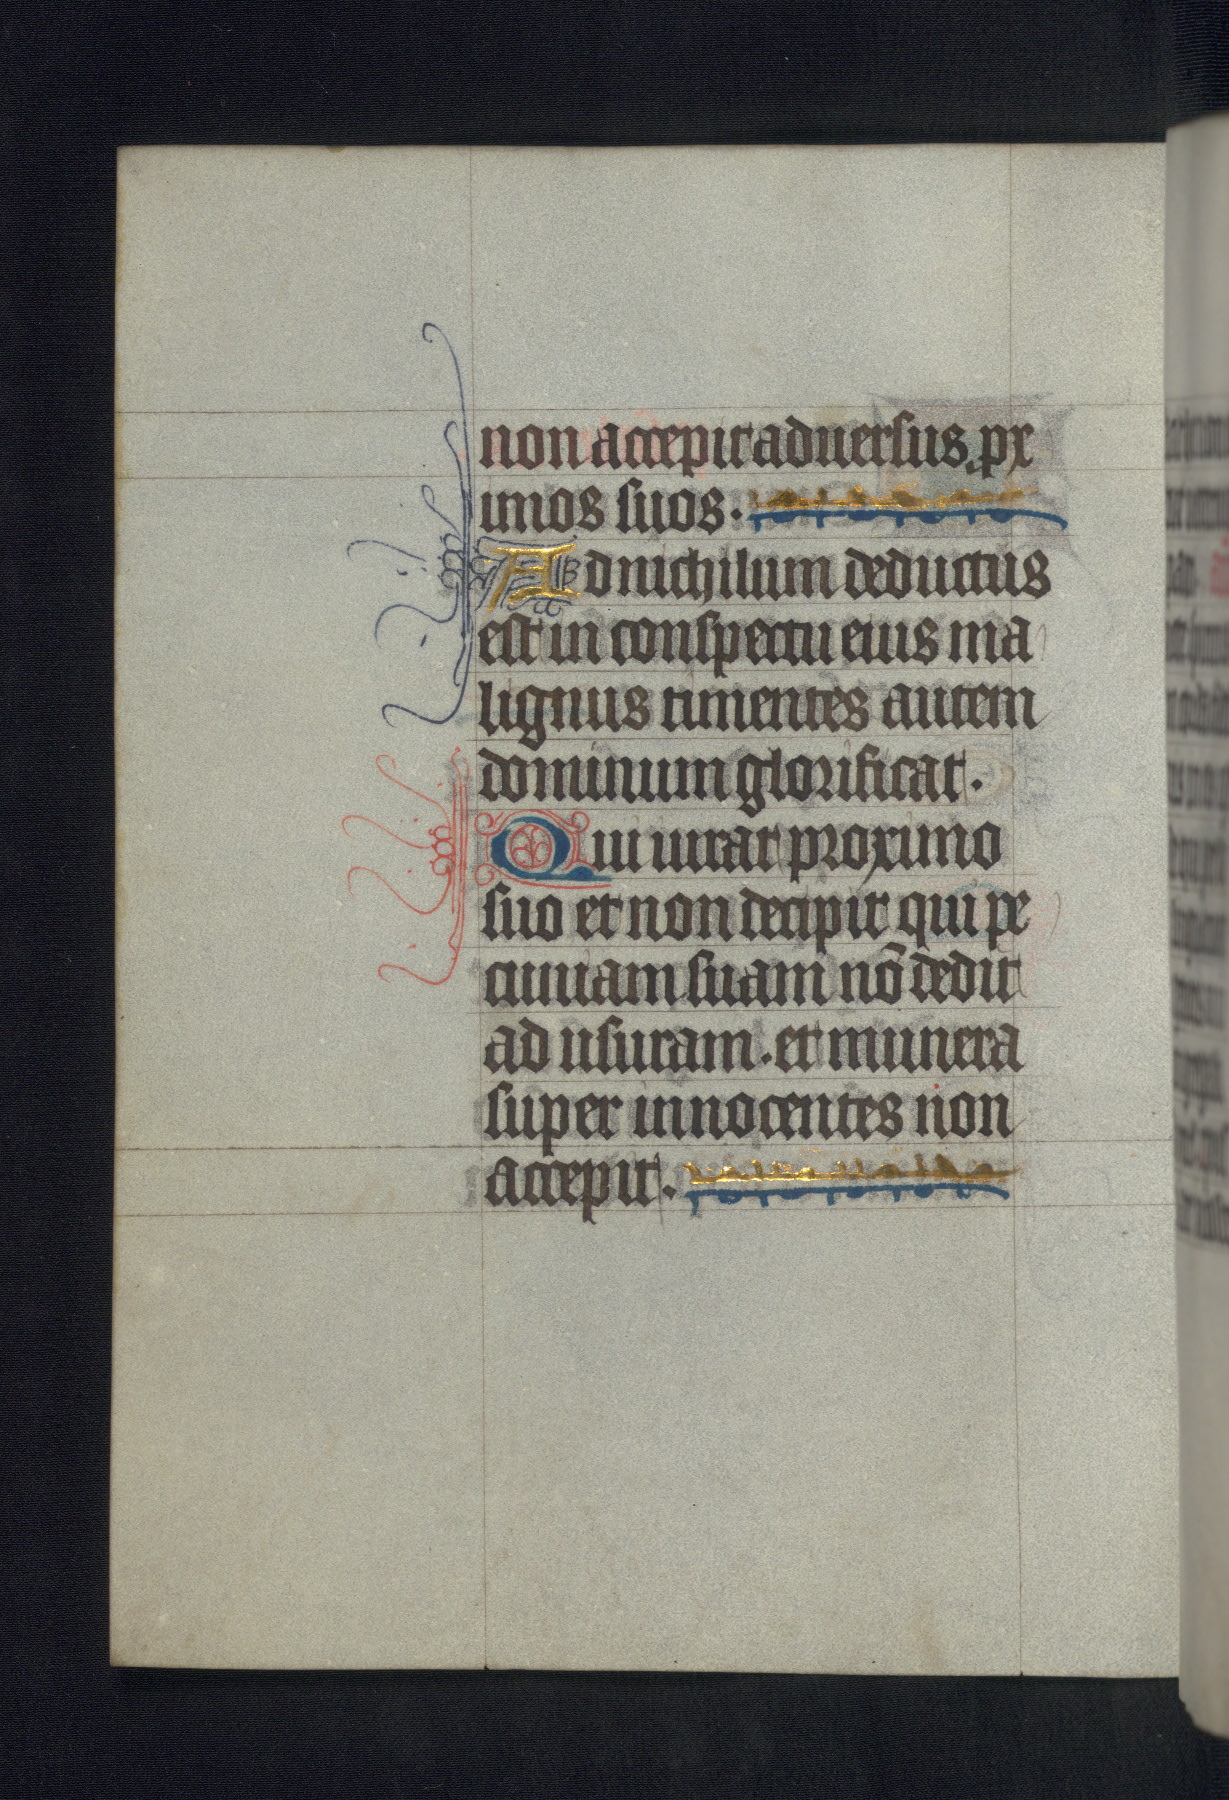 non accepit aduersus ꝓx
imos suos.
Ad nichilum deductus
est in conspectu eius ma
lignus timentes autem
dominum glorificat.
Qui iurat proximo
suo et non decipit qui pe
cuniam suam nō dedit
ad usuram. et munera
super innocentes non
accepit.